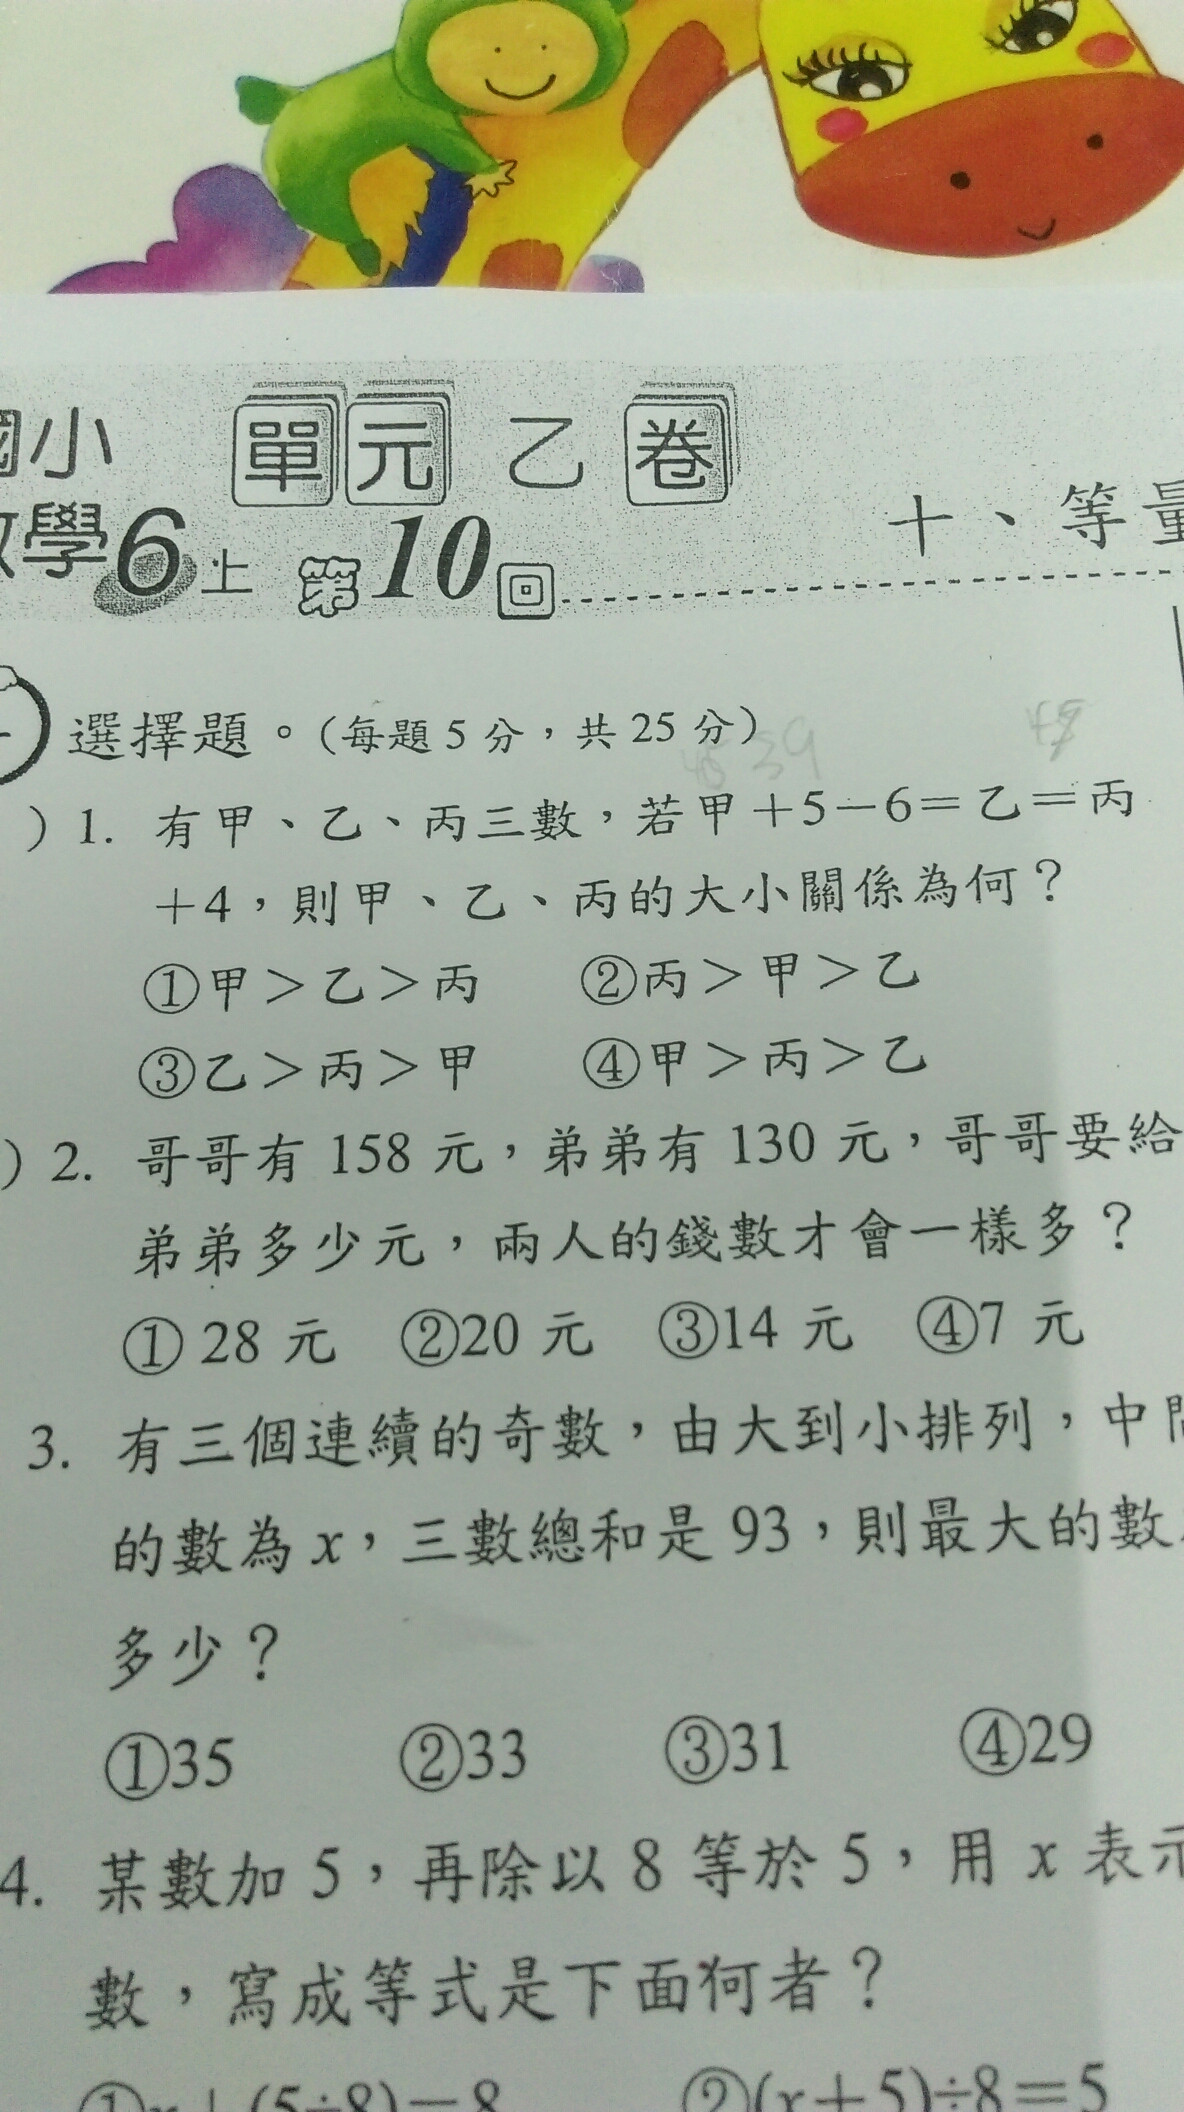 國小 單元乙卷
數學6上 第10回 十、等量
選擇題。(每題5分,共25分)
)1. 有甲、乙、丙三數,若甲+5-6=乙=丙
+4,則甲、乙、丙的大小關係為何?
①甲>乙>丙 ②丙>甲>乙
③乙>丙>甲 ④甲>丙>乙
)2. 哥哥有 158 元,弟弟有 130 元,哥哥要給
弟弟多少元,兩人的錢數才會一樣多?
① 28 元 ②20 元 ③14 元 ④7 元
3. 有三個連續的奇數,由大到小排列,中間
的數為 x,三數總和是 93,則最大的數
多少?
①35 ②33 ③31 ④29
4. 某數加 5,再除以 8 等於 5,用 x 表示
數,寫成等式是下面何者?
①x+(5÷8)=8 ②(x+5)÷8=5